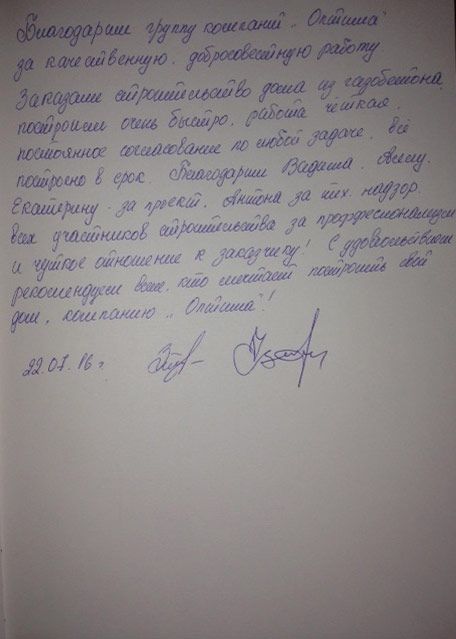 Благодарим группу компаний „Оптима"
за качественную, добросовестную работу.
Заказали строительство дома из газобетона,
построили очень быстро, работа чёткая,
постоянное согласование по любой задаче, всё
построено в срок. Благодарим Вадима, Алису,
Екатерину - за проект, Антона за тех. надзор.
всех участников строительства за профессионализм
и чуткое отношение к заказчику! С удовольствием
рекомендуем всем, кто мечтает построить свой
дом, компанию „Оптима"!
22.07.16 г.